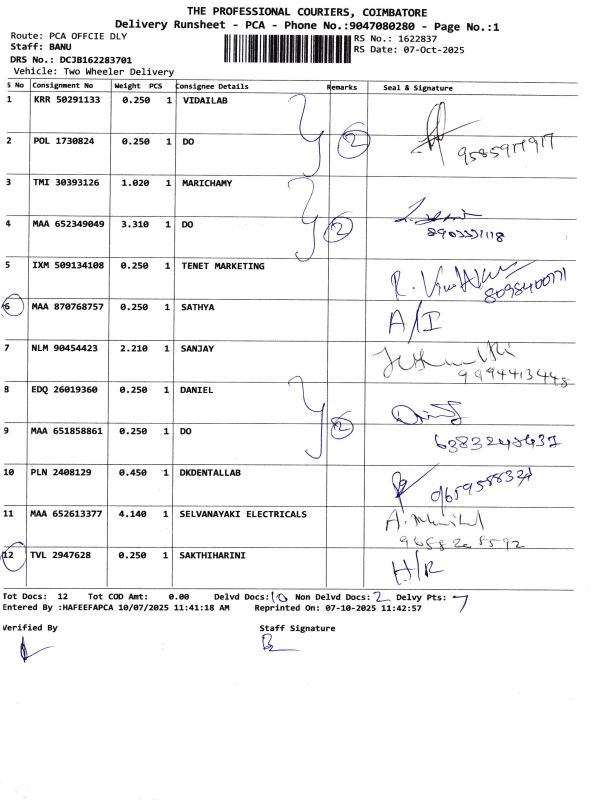 THE PROFESSIONAL COURIERS, COIMBATORE
Delivery Runsheet - PCA - Phone No.:9047080280 - Page No.:1
Route: PCA OFFCIE DLY
RS No.: 1622837
Staff: BANU
RS Date: 07-Oct-2025
DRS No.: DCJB162283701
Vehicle: Two Wheeler Delivery
S No Consignment No Weight PCS Consignee Details Remarks Seal & Signature
1 KRR 50291133 0.250 1 VIDAILAB
2 POL 1730824 0.250 1 DO 2
3 TMI 30393126 1.020 1 MARICHAMY
4 MAA 652349049 3.310 1 DO 2
5 IXM 509134108 0.250 1 TENET MARKETING
6 MAA 870768757 0.250 1 SATHYA A/I
7 NLM 90454423 2.210 1 SANJAY
9994413448
8 EDQ 26019360 0.250 1 DANIEL
9 MAA 651858861 0.250 1 DO 2
10 PLN 2408129 0.450 1 DKDENTALLAB
11 MAA 652613377 4.140 1 SELVANAYAKI ELECTRICALS
12 TVL 2947628 0.250 1 SAKTHIHARINI H/R
Tot Docs: 12 Tot COD Amt: 0.00 Delvd Docs: 10 Non Delvd Docs: 2 Delvy Pts: 7
Entered By :HAFEEFAPCA 10/07/2025 11:41:18 AM Reprinted On: 07-10-2025 11:42:57
Verified By Staff Signature